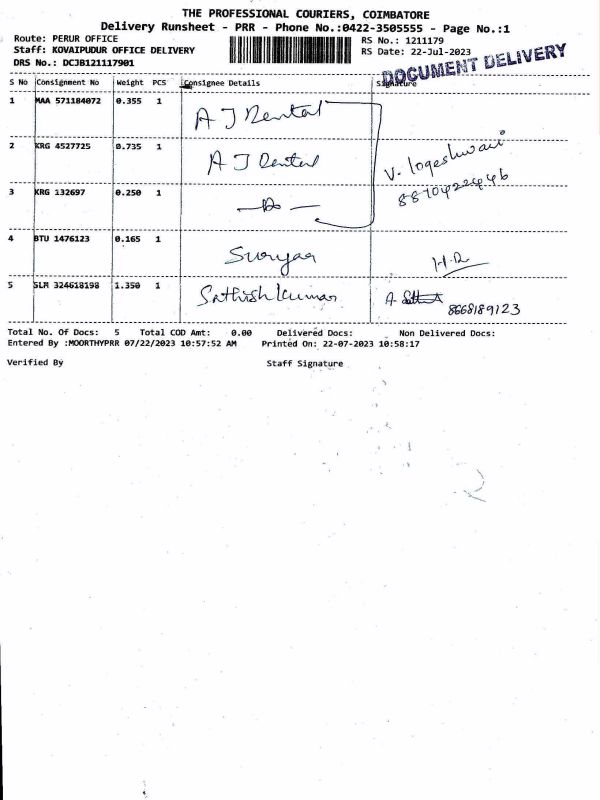 THE PROFESSIONAL COURIERS, COIMBATORE
Delivery Runsheet - PRR - Phone No.:0422-3505555 - Page No.:1
Route: PERUR OFFICE RS No.: 1211179
Staff: KOVAIPUDUR OFFICE DELIVERY RS Date: 22-Jul-2023
DRS No.: DCJB121117901 DOCUMENT DELIVERY
S No Consignment No Weight PCS Consignee Details Signature
1 MAA 571184072 0.355 1 A J Dental
2 KRG 4527725 0.735 1 A J Dental V. logeshwari
3 KRG 132697 0.250 1
4 BTU 1476123 0.165 1 Suryaa H.R
5 SLM 324618198 1.350 1 Sathish Kumar A. 8668189123
Total No. Of Docs: 5 Total COD Amt: 0.00 Delivered Docs: Non Delivered Docs:
Entered By :MOORTHYPRR 07/22/2023 10:57:52 AM Printed On: 22-07-2023 10:58:17
Verified By Staff Signature